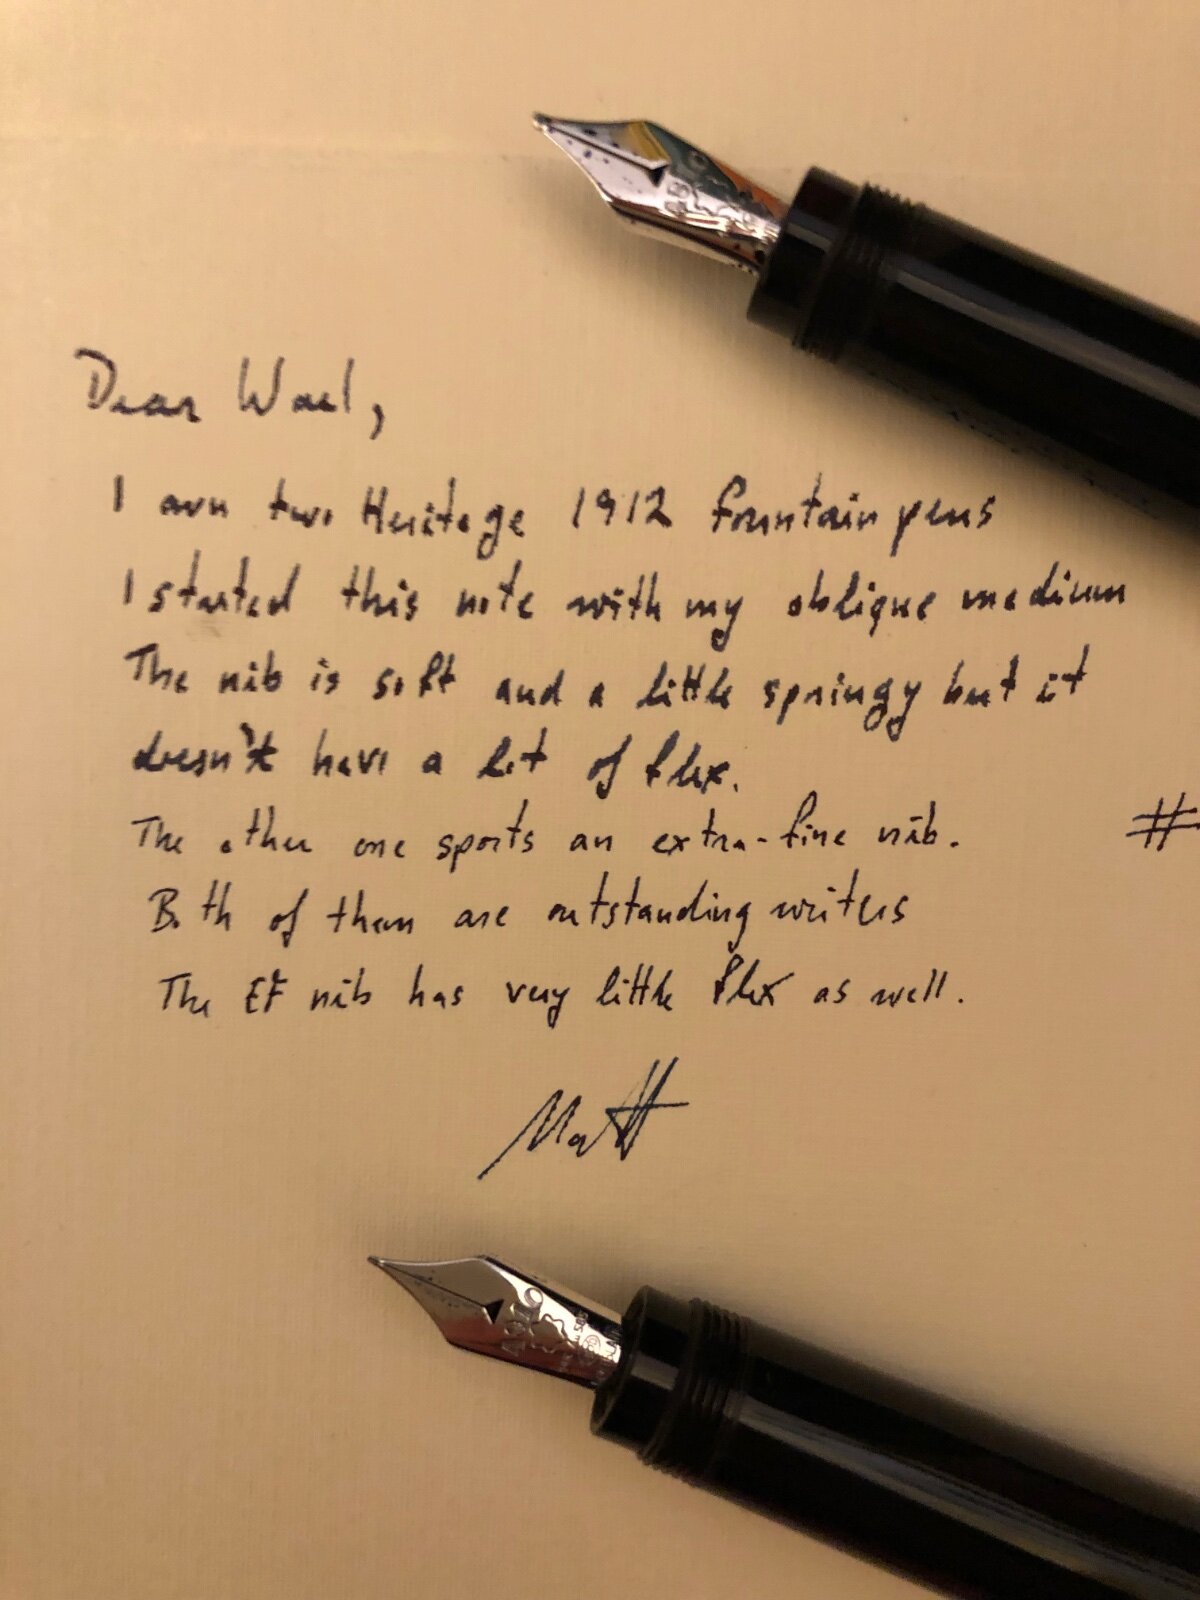 Dear Wael,
I own two Heritage 1912 fountain pens
I started this note with my oblique medium
The nib is soft and a little springy but it
doesn't have a lot of flex.
The other one sports an extra-fine nib. #
Both of them are outstanding writers
The EF nib has very little flex as well.
Matt
4810